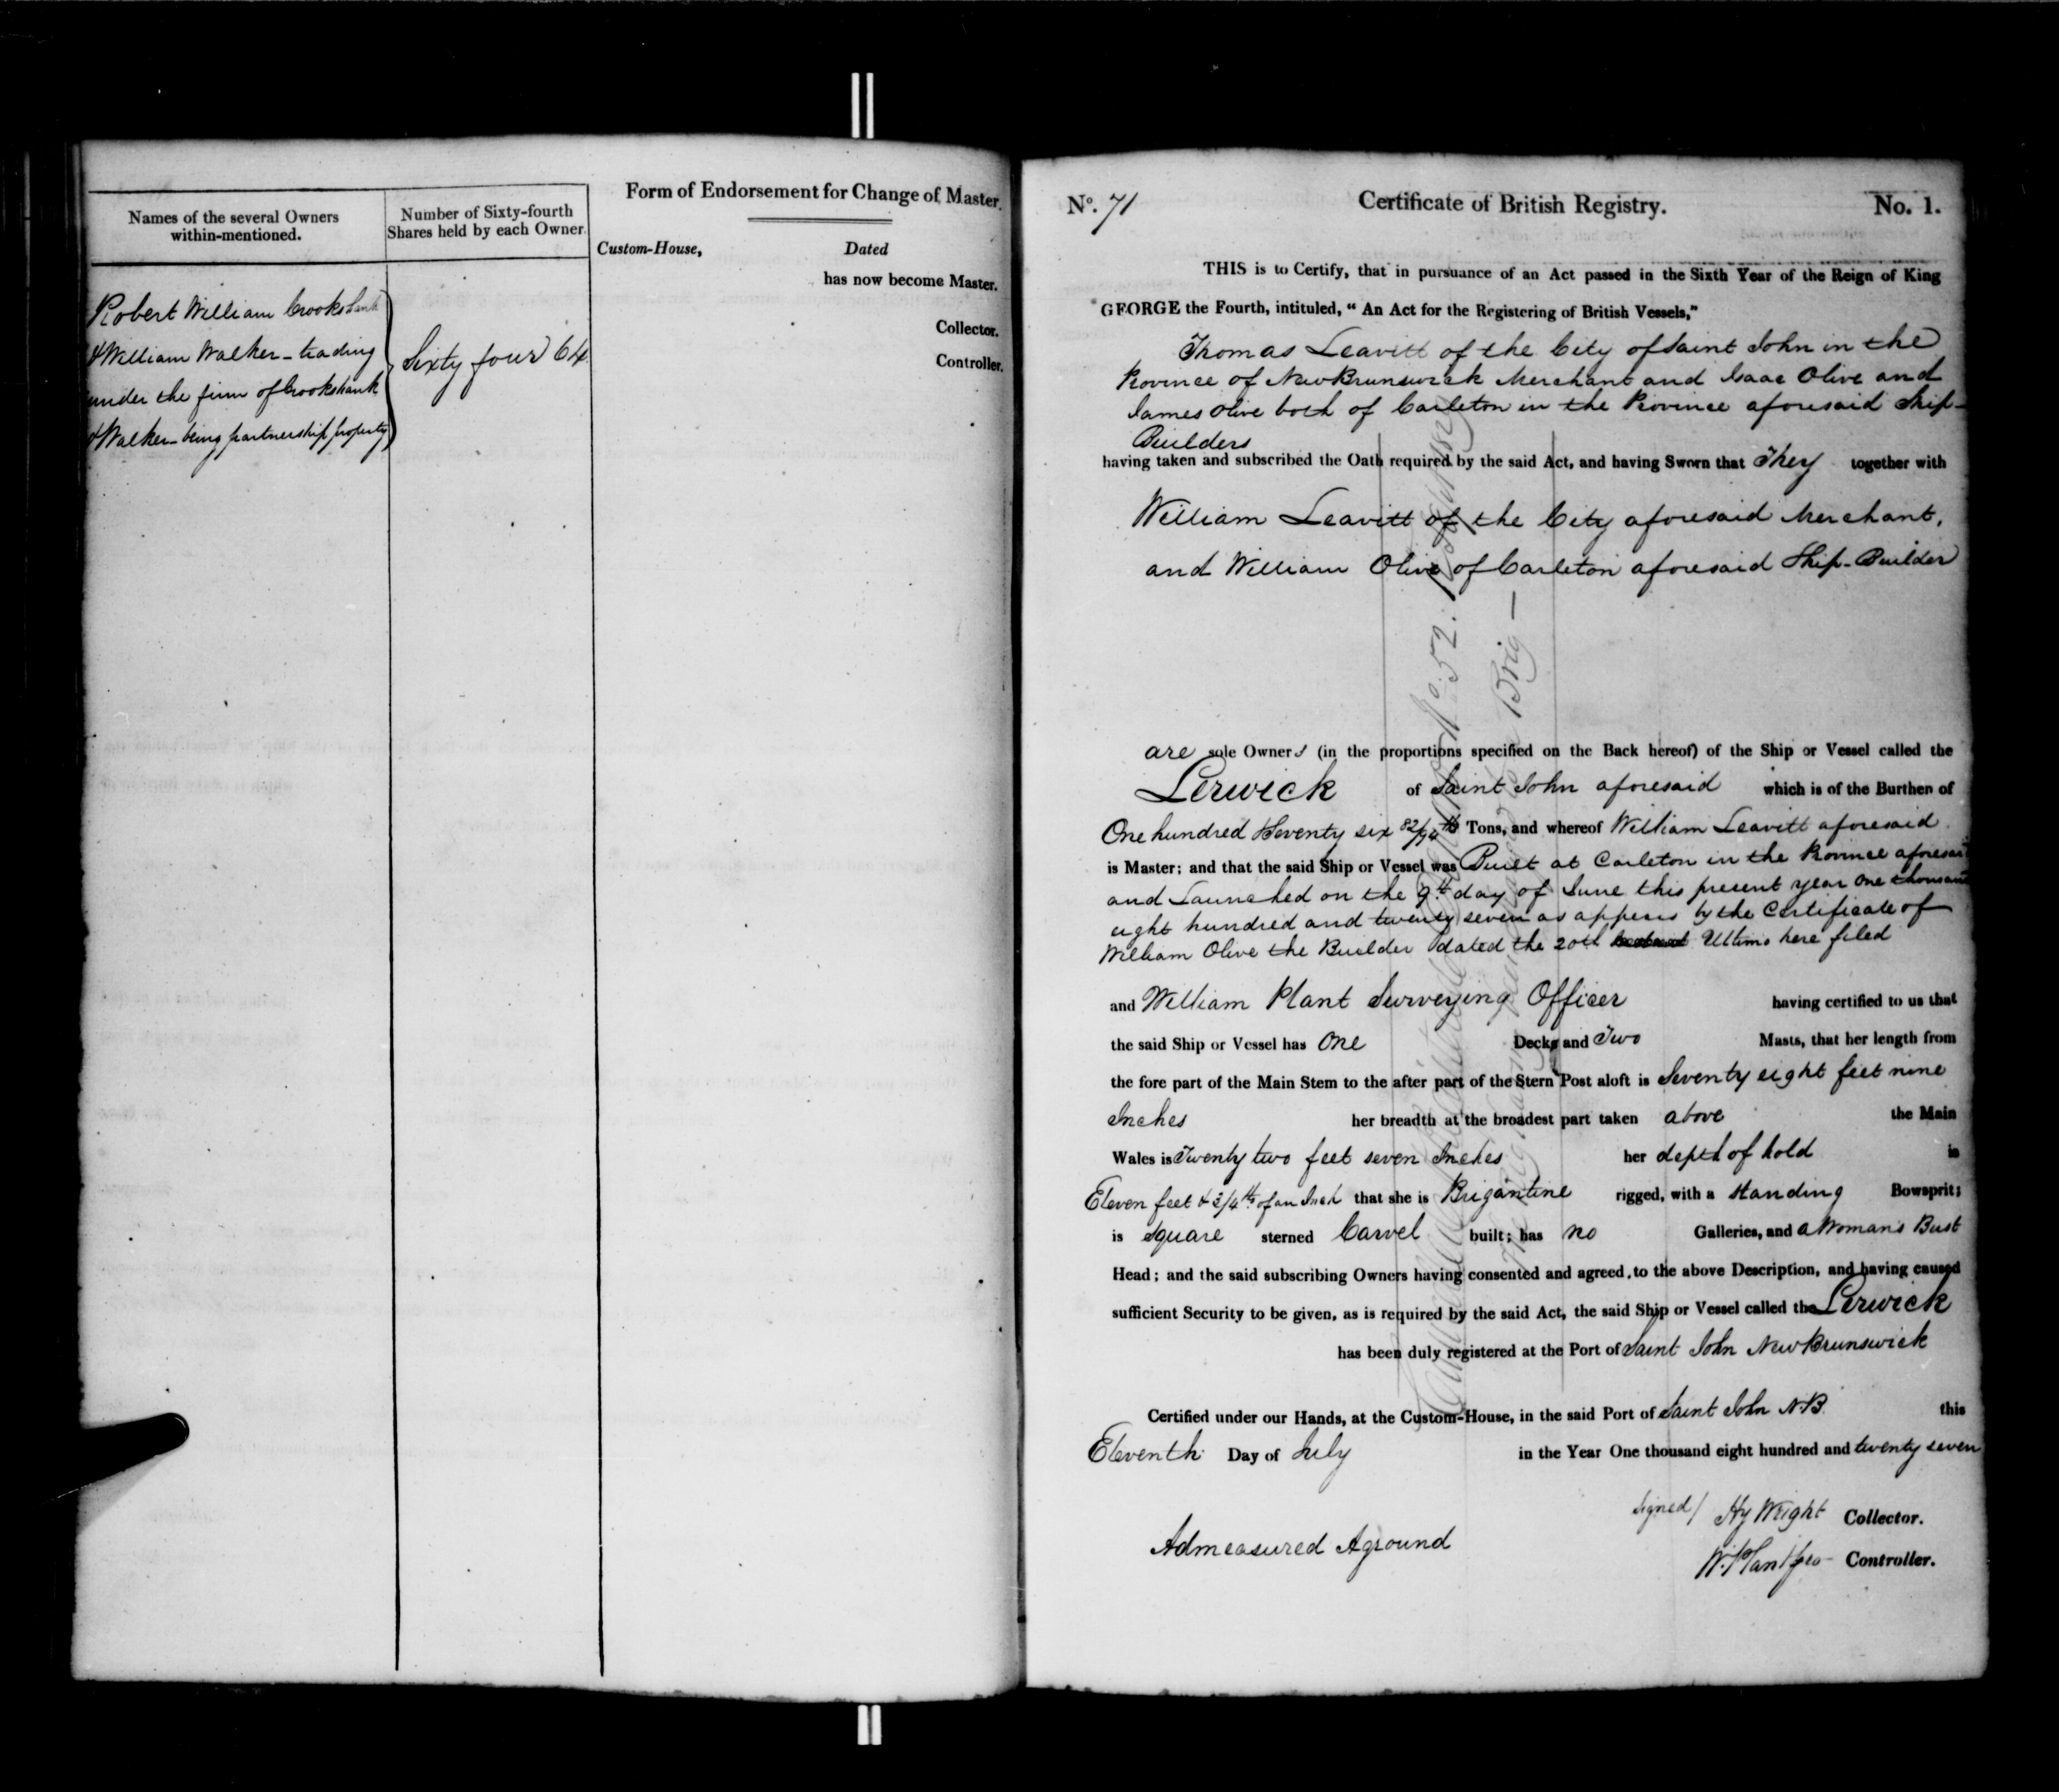 Names of the several Owners
within-mentioned.
Number of Sixty-fourth
Shares held by each Owner.
Robert William Crookshank
& William Walker - trading
under the firm of Crookshank
& Walker - being partnership property
Sixty four 64
Form of Endorsement for Change of Master.
Custom-House, Dated
has now become Master.
Collector.
Controller.
No. 71 Certificate of British Registry. No. 1.
THIS is to Certify, that in pursuance of an Act passed in the Sixth Year of the Reign of King
GEORGE the Fourth, intituled, “ An Act for the Registering of British Vessels,”
Thomas Leavitt of the City of Saint John in the
Province of New Brunswick Merchant and Isaac Olive and
James Olive both of Carleton in the Province aforesaid Ship-
Builders
having taken and subscribed the Oath required by the said Act, and having Sworn that They together with
William Leavitt of the City aforesaid Merchant,
and William Olive of Carleton aforesaid Ship-Builder
are sole Owners (in the proportions specified on the Back hereof) of the Ship or Vessel called the
Lerwick of Saint John aforesaid which is of the Burthen of
One hundred Seventy six 82/94th Tons, and whereof William Leavitt aforesaid
is Master; and that the said Ship or Vessel was Built at Carleton in the Province aforesaid
and Launched on the 9th day of June this present year One thousand
eight hundred and twenty seven as appears by the Certificate of
William Olive the Builder dated the 20th Ultimo here filed
and William Plant Surveying Officer having certified to us that
the said Ship or Vessel has One Decks and Two Masts, that her length from
the fore part of the Main Stem to the after part of the Stern Post aloft is Seventy eight feet nine
Inches her breadth at the broadest part taken above the Main
Wales is Twenty two feet seven Inches her depth of hold is
Eleven feet & 3/4ths of an Inch that she is Brigantine rigged, with a standing Bowsprit;
is Square sterned Carvel built; has no Galleries, and a Woman's Bust
Head; and the said subscribing Owners having consented and agreed to the above Description, and having caused
sufficient Security to be given, as is required by the said Act, the said Ship or Vessel called the Lerwick
has been duly registered at the Port of Saint John New Brunswick
Certified under our Hands, at the Custom-House, in the said Port of Saint John N.B. this
Eleventh Day of July in the Year One thousand eight hundred and twenty seven
Signed/ Hy Wright Collector.
Admeasured Aground
Controller.
No. 52.
Brig -